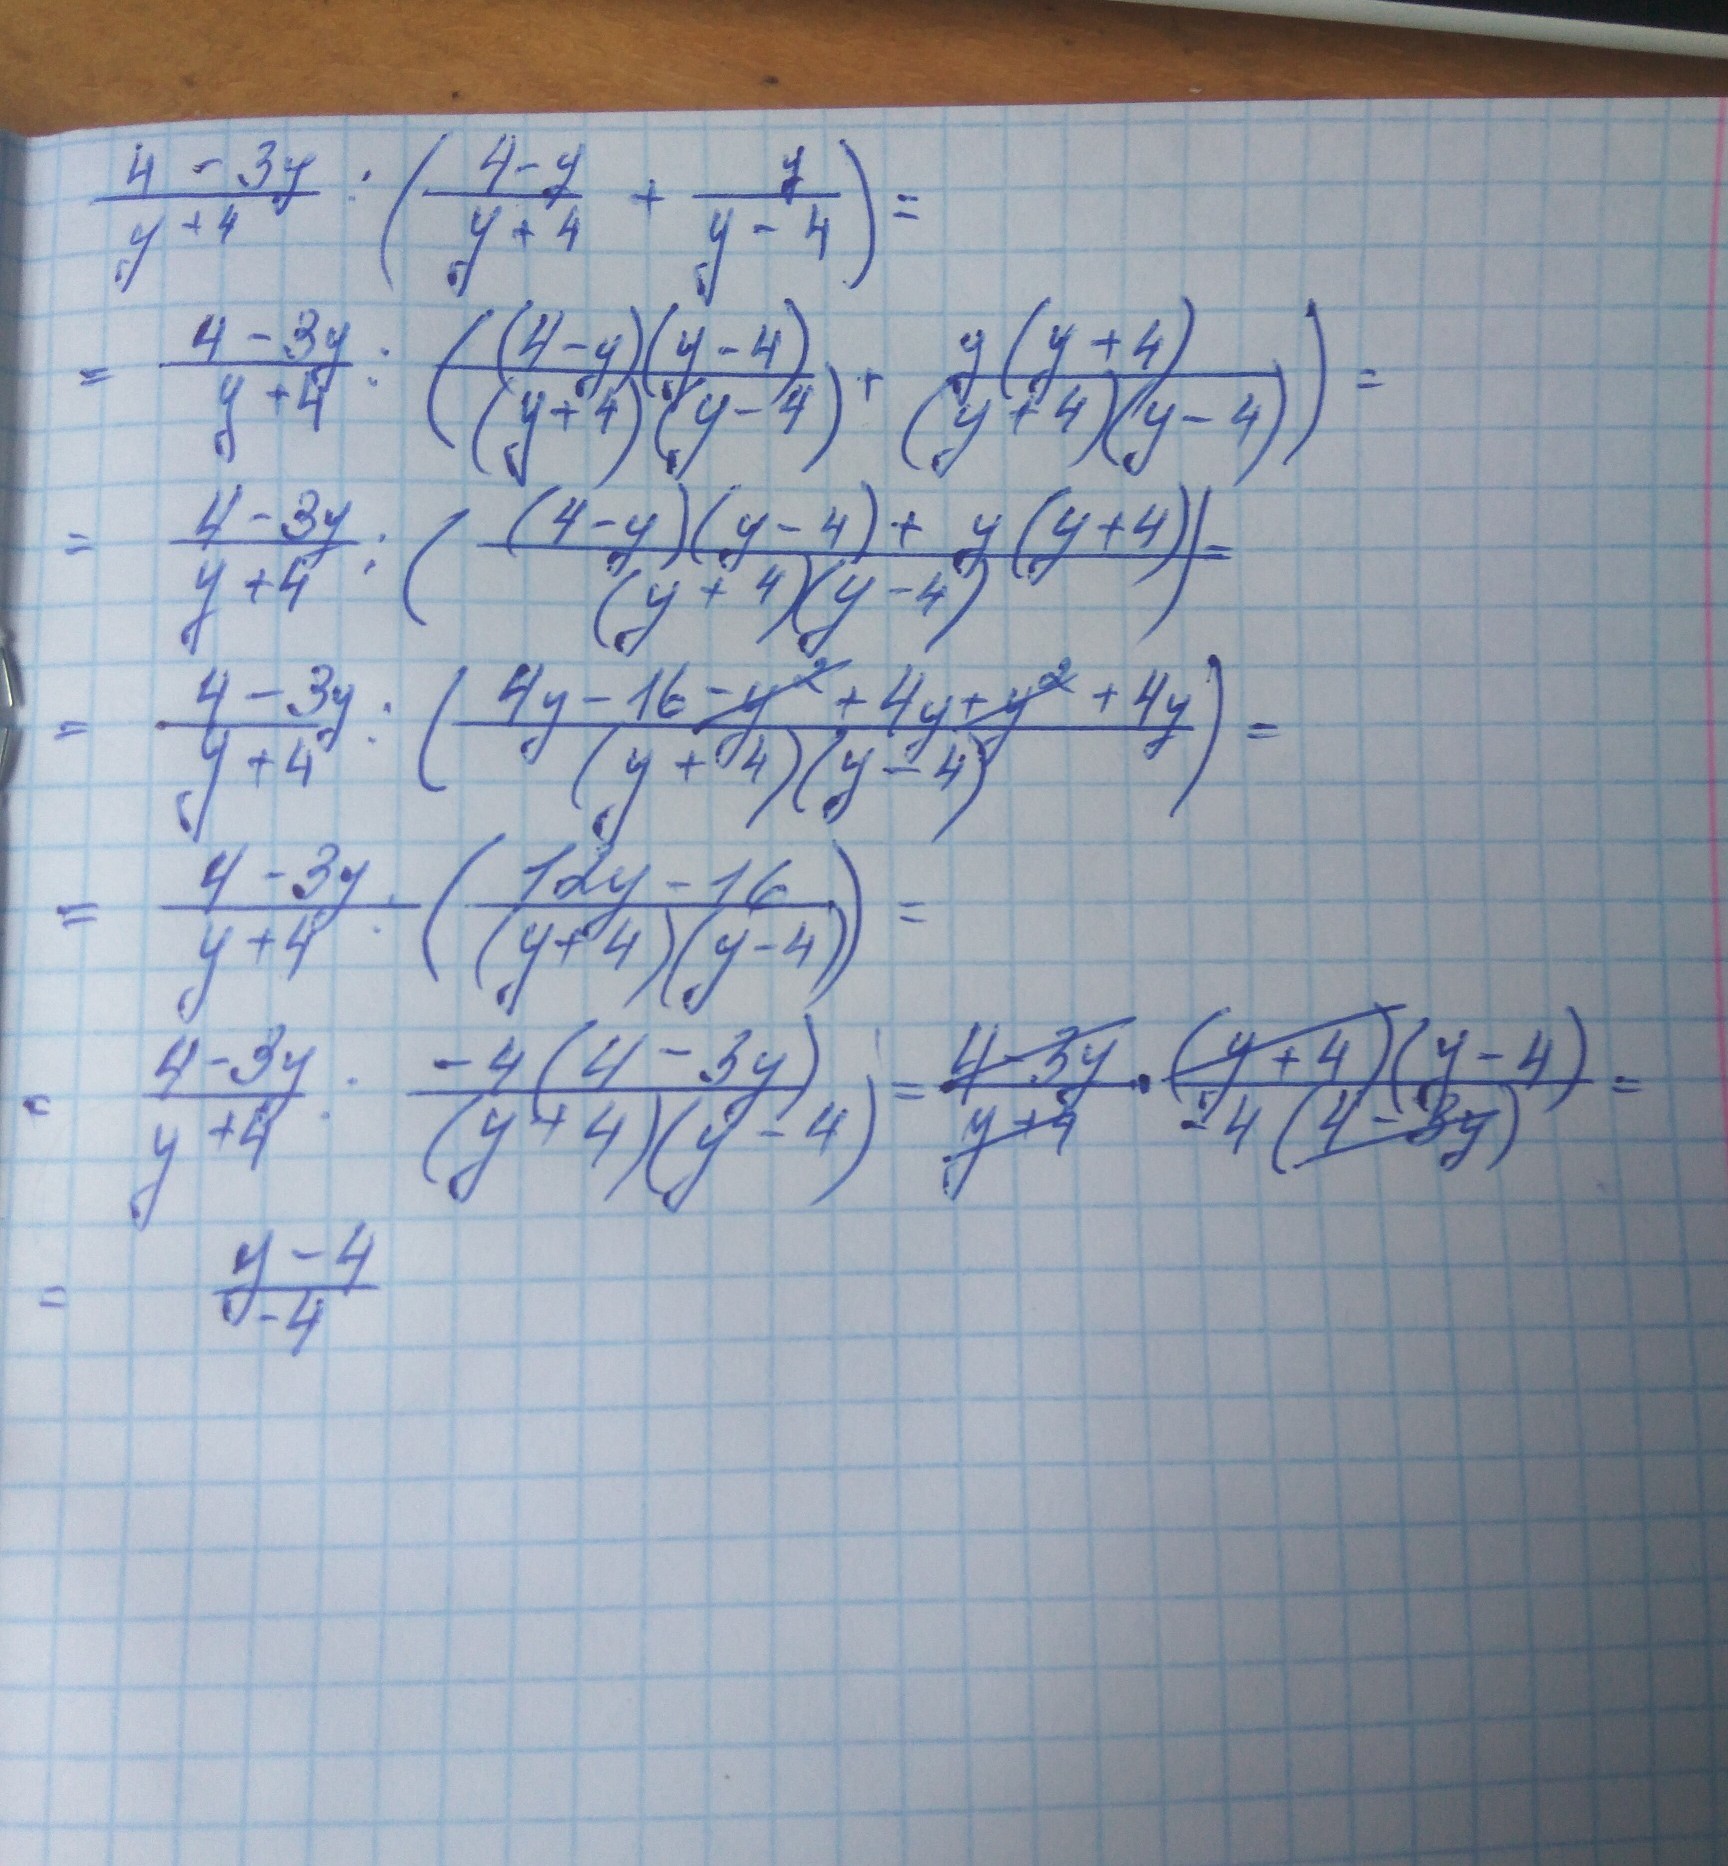 (4 - 3y)/(y + 4) : ((4 - y)/(y + 4) + y/(y - 4)) =
= (4 - 3y)/(y + 4) : ((4 - y)(y - 4)/(y + 4)(y - 4) + y(y + 4)/(y + 4)(y - 4)) =
= (4 - 3y)/(y + 4) : (((4 - y)(y - 4) + y(y + 4))/(y + 4)(y - 4)) =
= (4 - 3y)/(y + 4) : ((4y - 16 - y² + 4y + y² + 4y)/(y + 4)(y - 4)) =
= (4 - 3y)/(y + 4) : ((12y - 16)/(y + 4)(y - 4)) =
= (4 - 3y)/(y + 4) : -4(4 - 3y)/(y + 4)(y - 4) = (4 - 3y)/(y + 4) · (y + 4)(y - 4)/-4(4 - 3y) =
= (y - 4)/-4